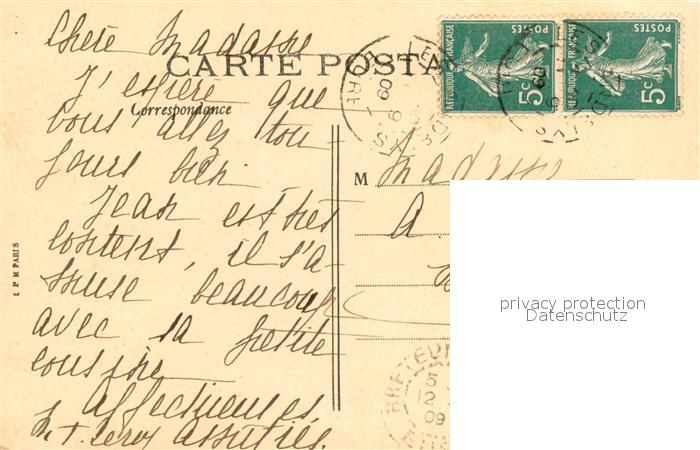 Chère Madame
CARTE POSTA
J'espère que
Correspondance
vous allez tou-
jours bien
Jean est très
content, il s'a-
muse beaucoup
avec sa petite
cousine
affectueuses
M Madame
A.
I P M PARIS
RÉPUBLIQUE FRANÇAISE
POSTES
5c
RÉPUBLIQUE FRANÇAISE
POSTES
5c
BRETEUI
5
12
09
privacy protection
Datenschutz